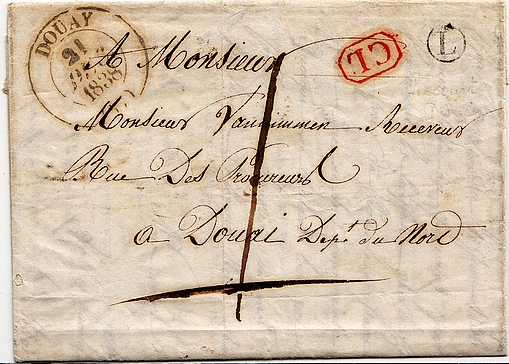 DOUAY
21
1838
CL
L
A Monsieur
Monsieur Vanuimmen Receveur
Rue Des Procureurs
a Douai Dept du Nord
1